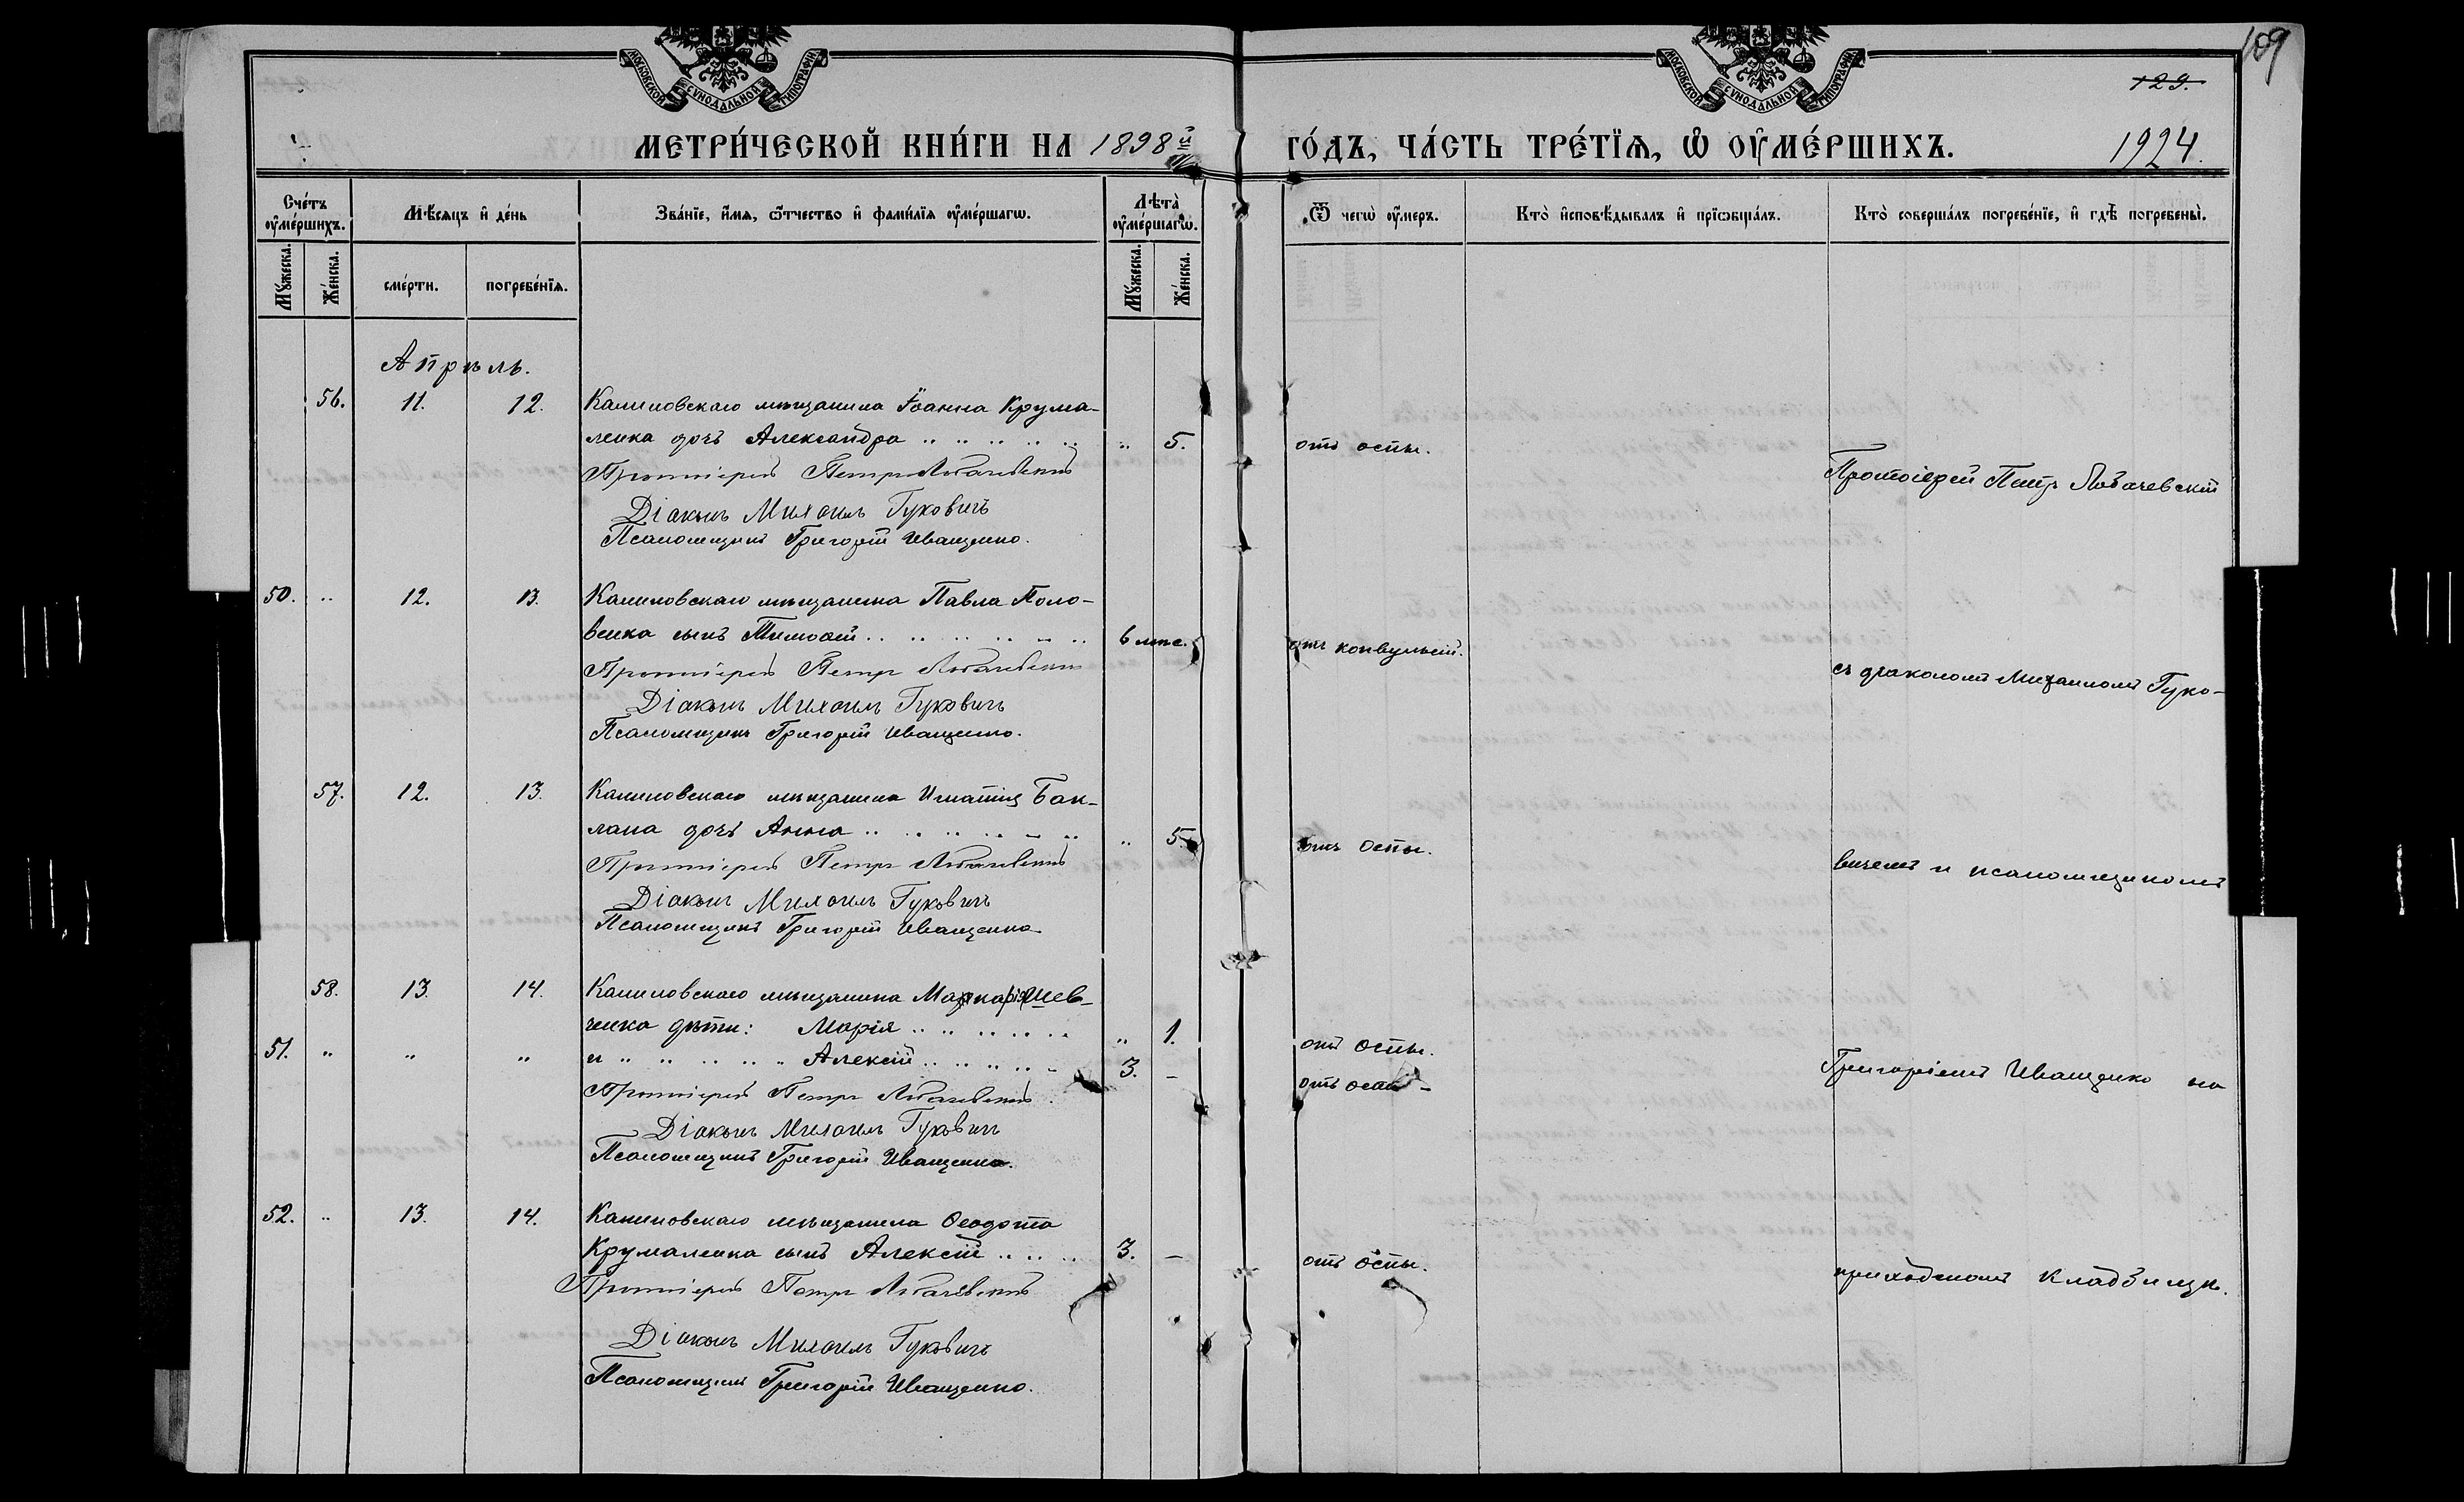 109
129.
1924.
МОСКОВСКОЙ СѴНОДАЛЬНОЙ ТИПОГРАФІИ
МОСКОВСКОЙ СѴНОДАЛЬНОЙ ТИПОГРАФІИ
МЕТРИ́ЧЕСКОЙ КНИ́ГИ НА 1898й ГО́ДЪ, ЧА́СТЬ ТРЕ́ТІѦ, Ѡ ОУМЕ́РШИХЪ.
Сче́тъ оумéршихъ.
Мꙋ́жеска.
Же́нска.
Мѣ́сяцъ и де́нь
сме́рти.
погребе́нїѧ.
Зва́нїе, и́мѧ, ѻ҆́тчество и фами́лїѧ оумéршагѡ.
Лѣта̀ оумéршагѡ.
Мꙋ́жеска.
Же́нска.
Ѿ чегѡ̀ оу́меръ.
Кто̀ и҆сповѣ́дывалъ и҆ прїѡбща́лъ.
Кто̀ соверша́лъ погребе́нїе, и҆ гдѣ̀ погребены̀.
Апрѣль.
56. 11. 12. Калиновскаго мѣщанина Іоанна Крума-
ленка дочь Александра 5. отъ оспы.
Протоіерей Петръ Лобачевскій
Діаконъ Михаилъ Гуковичъ
Псаломщикъ Григорій Иващенко.
Протоіерей Петръ Лобачевскій
50. 12. 13. Калиновскаго мѣщанина Павла Поло-
венка сынъ Тимоѳей 6 мѣс. отъ конвульсій.
Протоіерей Петръ Лобачевскій
Діаконъ Михаилъ Гуковичъ
Псаломщикъ Григорій Иващенко.
съ діакономъ Михаиломъ Гуко-
57. 12. 13. Калиновскаго мѣщанина Игнатія Бак-
лана дочь Анна 5. отъ оспы.
Протоіерей Петръ Лобачевскій
Діаконъ Михаилъ Гуковичъ
Псаломщикъ Григорій Иващенко
вичемъ и псаломщикомъ
58. 13. 14. Калиновскаго мѣщанина Шев-
ченка дѣти: Марія 1. отъ оспы.
51. " " и Алексій 3. – отъ оспы –
Протоіерей Петръ Лобачевскій
Діаконъ Михаилъ Гуковичъ
Псаломщикъ Григорій Иващенко.
Григоріемъ Иващенко на
52. 13. 14. Калиновскаго мѣщанина Ѳеодота
Крумаленка сынъ Алексій 3. – отъ оспы.
Протоіерей Петръ Лобачевскій
Діаконъ Михаилъ Гуковичъ
Псаломщикъ Григорій Иващенко.
приходскомъ кладбищѣ.